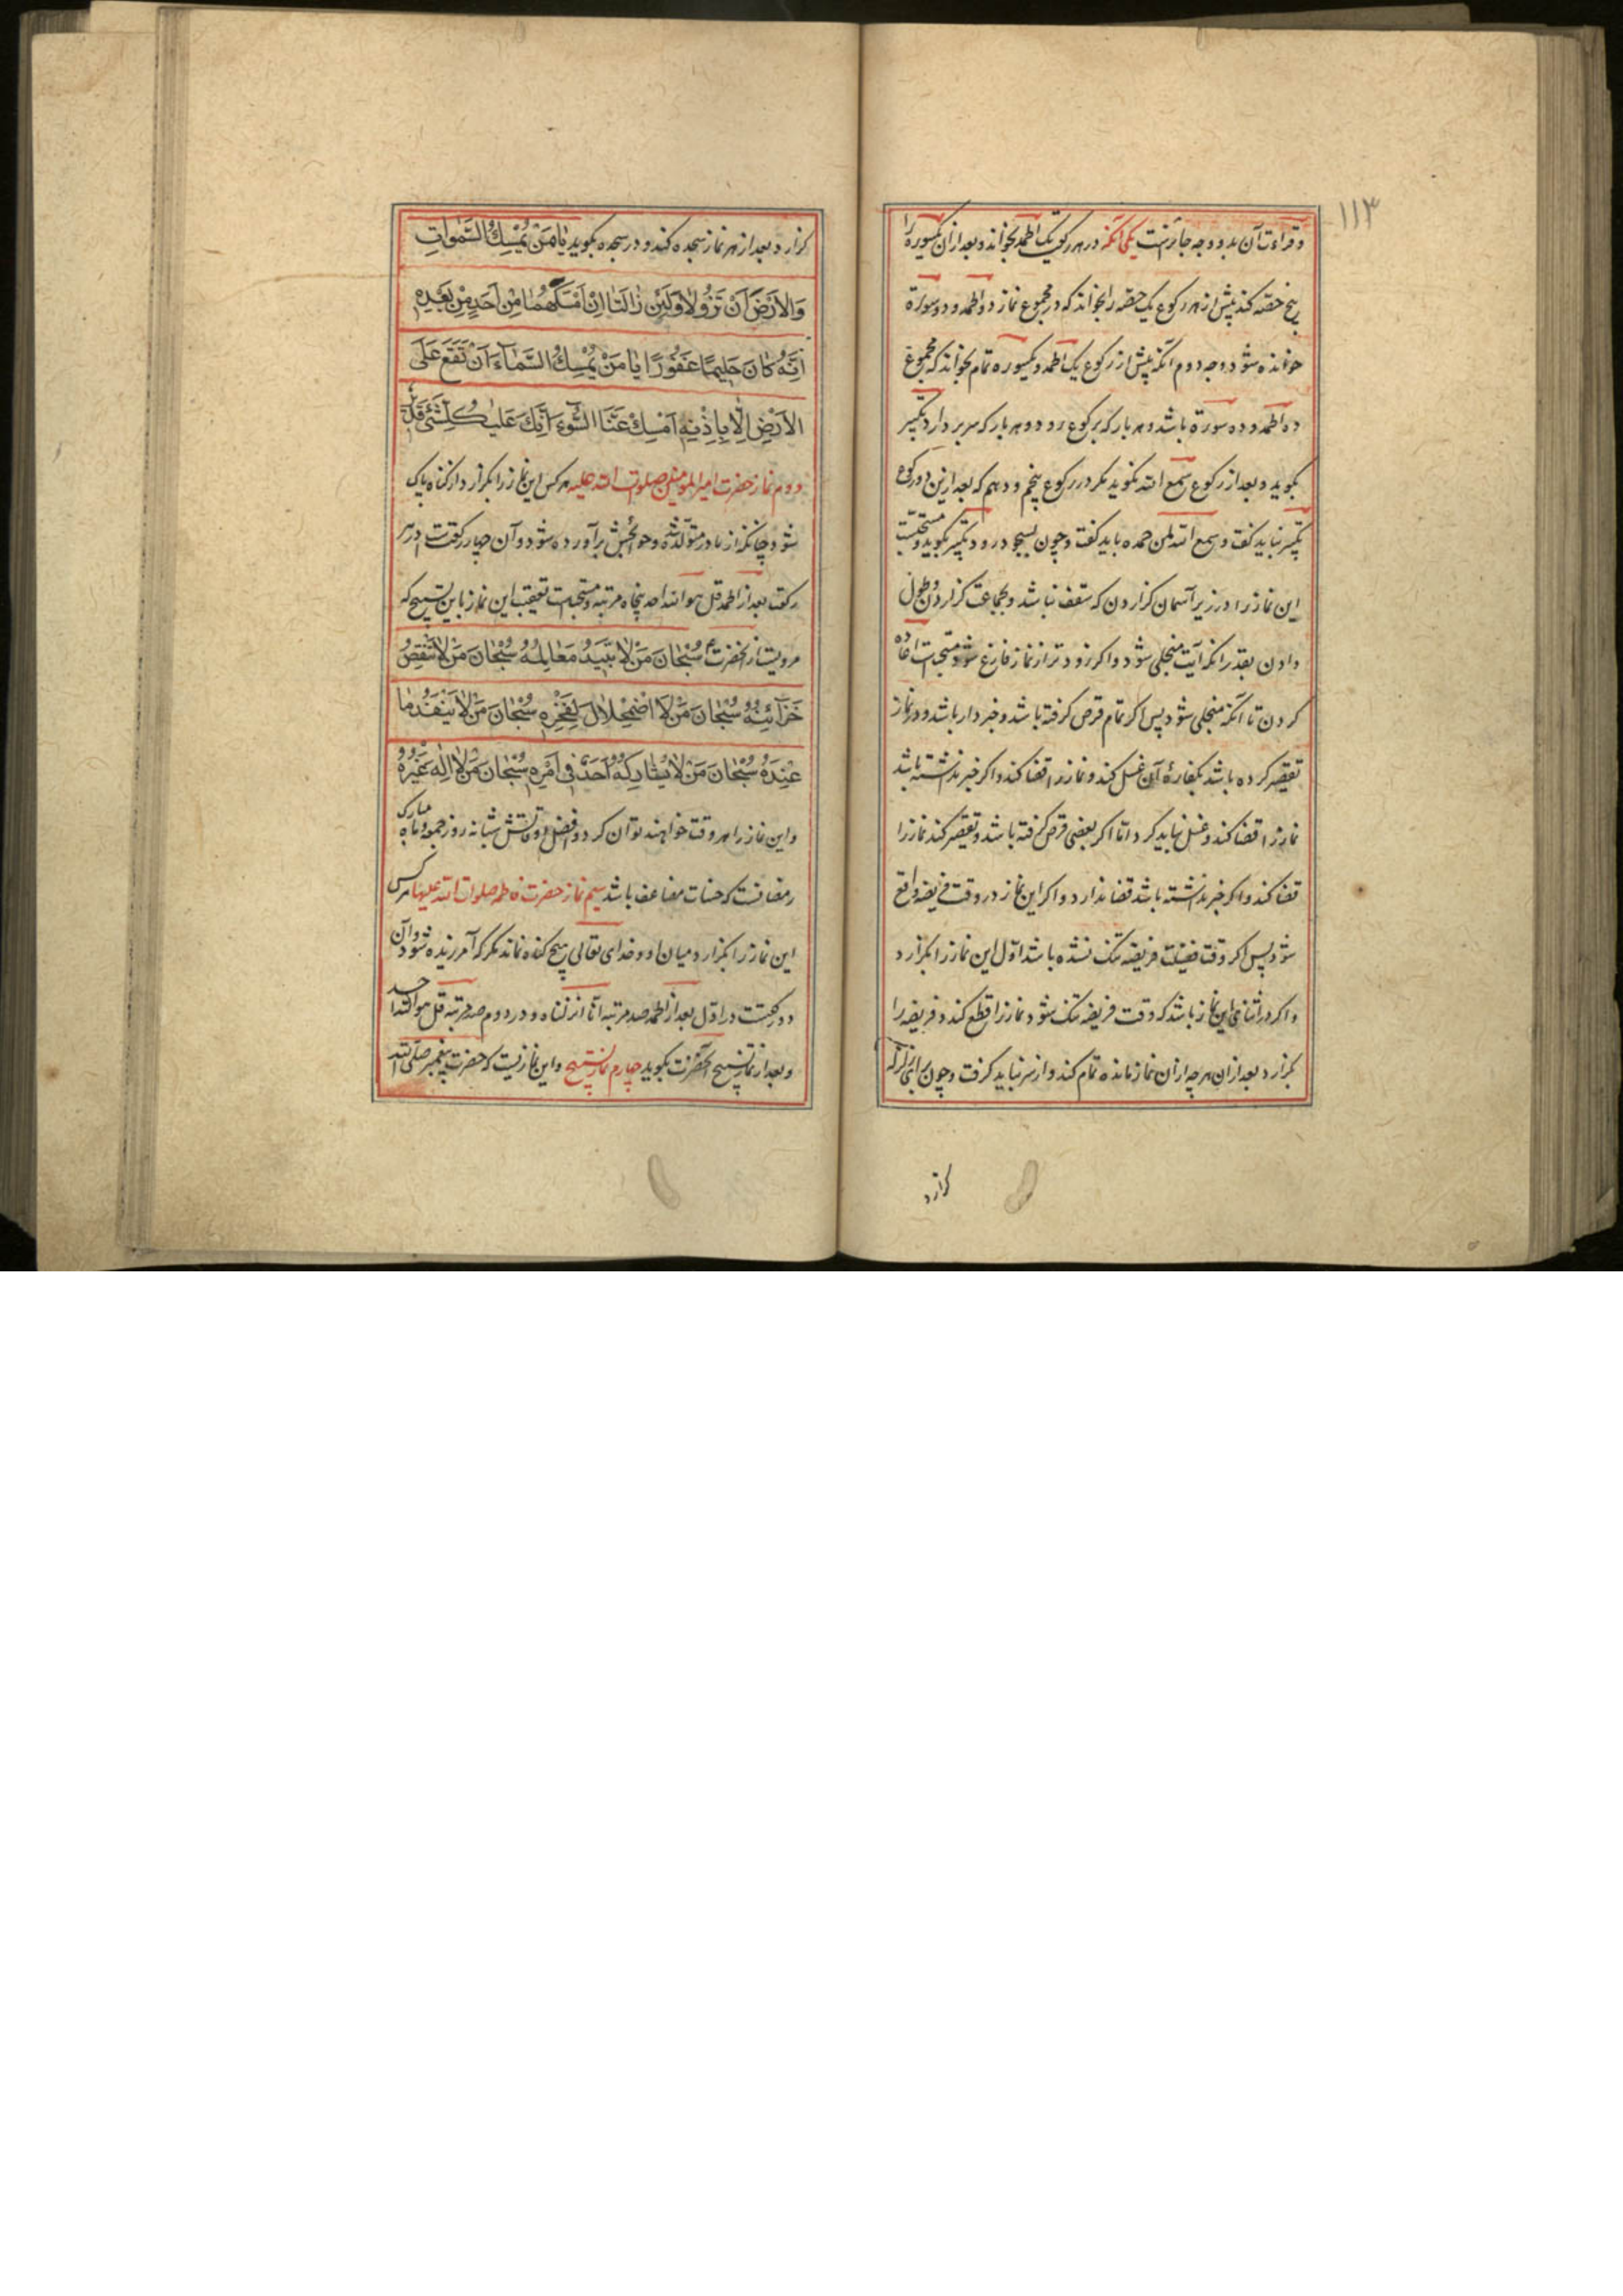 ١١٣
و قراءت آن بدو وجه جایزست یکی آنکه در هر رکعتی یک الحمد بخواند و بعد از آن یکسوره را
پنج حصه کند پیش از هر رکوع یک حصه را بخواند که در مجموع نماز دو الحمد و دو سورة
خوانده شود و وجه دوم آنکه پیش از رکوع یک الحمد و یکسوره تمام بخواند که مجموع
ده الحمد و ده سورة باشد و هر بار که برکوع رود و هر بار که سر بردارد تکبیر
بکوید و بعد از رکوع سمع الله نکوید مکر در رکوع پنجم و دهم که بعد ازین دو رکوع
تکبیر نباید کفت و سمع الله لمن حمده باید کفت و چون بسجود رود تکبیر بکوید و مستحبست
این نماز را در زیر آسمان کزاردن که سقف نباشد و بجماعت کزاردن و طول
دادن بقدر انکه آیت منجلی شود و اکر زودتر از نماز فارغ شود مستحبست اعاده
کردن تا آنکه منجلی شود پس اکر تمام قرص کرفته باشد و خبردار باشد و در نماز
تقصیر کرده باشد بکفارهٔ آن غسل کند و نماز را قضا کند و اکر خبر نداشته باشد
نماز را قضا کند و غسل نباید کرد اما اکر بعضی قرص کرفته باشد و تقصیر کند نماز را
قضا کند و اکر خبر نداشته باشد قضا ندارد و اکر این نماز در وقت فریضه واقع
شود پس اکر وقت فضیلت فریضه تنک نشده باشد اول این نماز را بکزارد
و اکر در اثنای این نماز باشد که وقت فریضه تنک شود نماز را قطع کند و فریضه را
بکزارد بعد از ان هر چه از ان نماز مانده تمام کند و از سر نباید کرفت و چون برای زلزله
کزارد
کزارد بعد از هر نماز سجده کند و در سجده بکوید یٰا مَنْ یُمْسِكُ السَّمٰواتِ
وَالاَرْضَ اَنْ تَزُولاٰ وَلَئِنْ زٰالَتٰا اِنْ اَمْسَكَهُمٰا مِنْ اَحَدٍ مِنْ بَعْدِهِ
اِنَّهُ كٰانَ حَلِیمًا غَفُورًا یٰا مَنْ یُمْسِكُ السَّمٰآءَ اَنْ تَقَعَ عَلَی
الاَرْضِ اِلّٰا بِاِذْنِهِ اَمْسِكْ عَنَّا السُّوٓءَ اِنَّكَ عَلیٰ كُلِّ شَیْءٍ قَدیٖرٌ
دوم نماز حضرت امیر المومنین صلوات الله علیه هر کس این نماز را بکزارد از کناه پاک
شود چنانکه از مادر متولد شده و حوایجش برآورده شود و آن چهار رکعتست در هر
رکعت بعد از الحمد قل هو الله احد پنجاه مرتبه و مستحبست تعقیب این نماز باین تسبیح که
مرویست از آنحضرت ع سُبْحٰانَ مَنْ لاٰ تَبیٖدُ مَعٰالِمُهُ سُبْحٰانَ مَنْ لاٰ تَنْقُصُ
خَزٰآئِنُهُ سُبْحٰانَ مَنْ لاَ اضْمِحْلاٰلَ لِفَخْرِهِ سُبْحٰانَ مَنْ لاٰ یَنْفَدُ مٰا
عِنْدَهُ سُبْحٰانَ مَنْ لاٰ یُشٰارِكُهُ اَحَدٌ فِی اَمْرِهِ سُبْحٰانَ مَنْ لاٰ اِلٰهَ غَیْرُهُ
و این نماز را هر وقت خواهند توان کرد و افضل اوقاتش شبانه روز جمعه و ماه مبارک
رمضانست که حسنات مضاعف باشد سیم نماز حضرت فاطمه صلوات الله علیها هر کس
این نماز را بکزارد میان او و خدای تعالی هیچ کناه نماند مکر که آمرزیده شود و آن
دو رکعتست در اول بعد از الحمد صد مرتبه انا انزلناه و در دوم صد مرتبه قل هو الله احد
و بعد از نماز تسبیح آنحضرت بکوید چهارم نماز تسبیح و این نمازیست که حضرت پیغمبر صلی الله